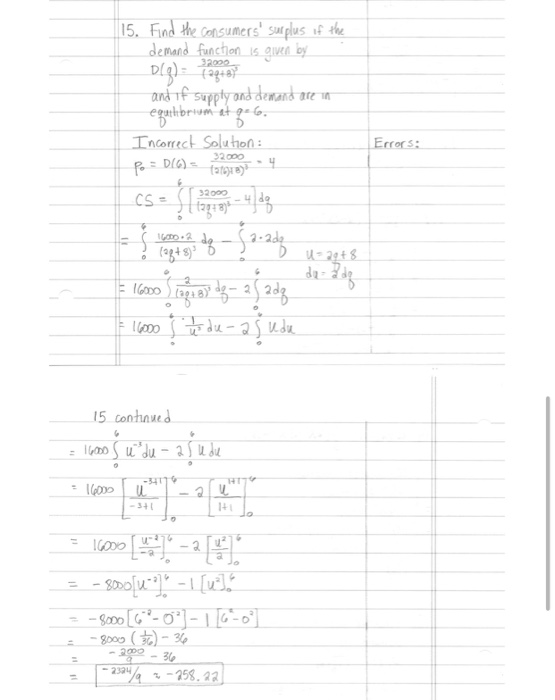 15. Find the consumers' surplus if the
demand function is given by
D(q) = 32000/(2q+8)³
and if supply and demand are in
equilibrium at q=6.
Incorrect Solution:
Errors:
p₀ = D(6) = 32000/(2(6)+8)³ = 4
CS = ∫₀⁶ [32000/(2q+8)³ - 4] dq
= ∫₀⁶ 16000·2/(2q+8)³ dq - ∫₀⁶ 2·2dq
u = 2q+8
du = 2dq
= 16000 ∫₀⁶ 2/(2q+8)³ dq - 2∫₀⁶ 2dq
= 16000 ∫₀⁶ 1/u³ du - 2∫₀⁶ u du
15 continued
= 16000 ∫₀⁶ u⁻³ du - 2∫₀⁶ u du
= 16000 [u⁻³⁺¹/-3+1]₀⁶ - 2[u¹⁺¹/1+1]₀⁶
= 16000 [u⁻²/-2]₀⁶ - 2[u²/2]₀⁶
= -8000[u⁻²]₀⁶ - 1[u²]₀⁶
= -8000[6⁻² - 0⁻²] - 1[6² - 0²]
= -8000 (1/36) - 36
= -2000/9 - 36
= -2324/9 ≈ -258.22